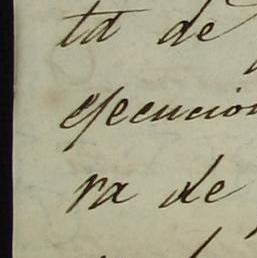 ta de
ejecucion
ra de